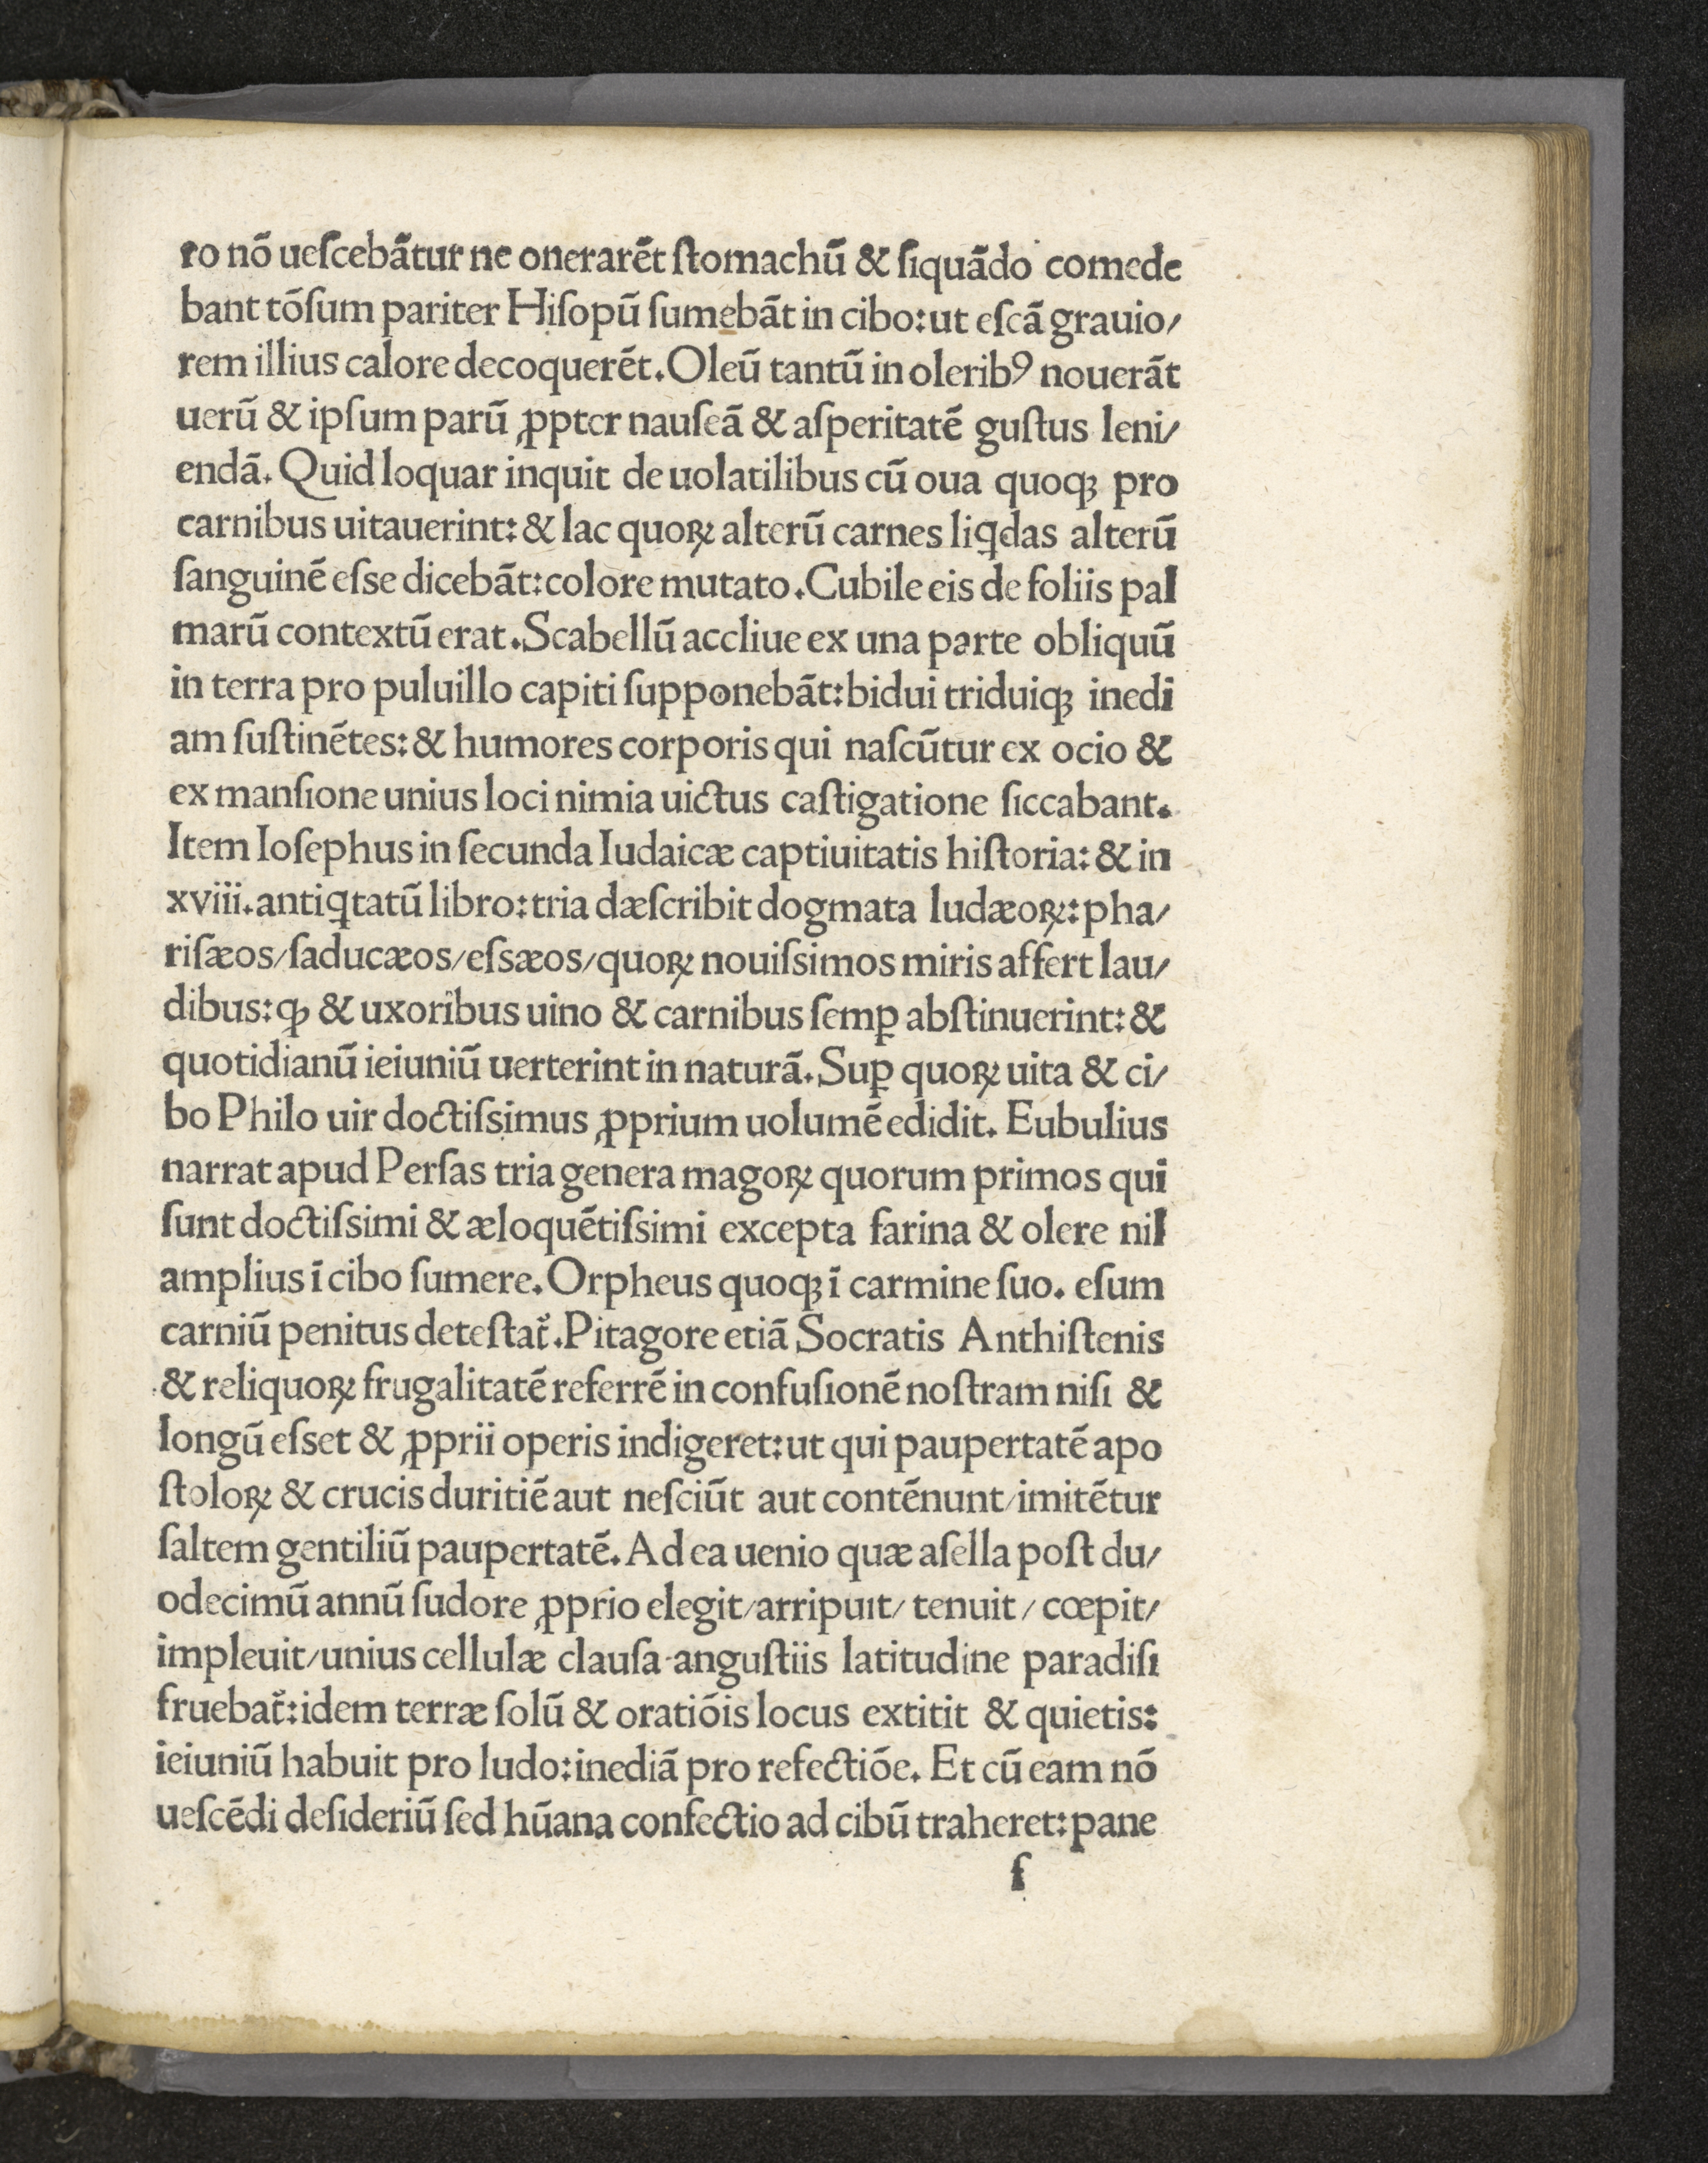 ro nõ ueſcebãtur ne onerarẽt ſtomachũ & ſiquãdo comede
bant tõſum pariter Hiſopũ ſumebãt in cibo: ut eſcã grauio/
rem illius calore decoquerẽt. Oleũ tantũ in olerib⁹ nouerãt
uerũ & ipſum parũ ꝓpter nauſeã & aſperitatẽ guſtus leni/
endã. Quid loquar inquit de uolatilibus cũ oua quoqꝫ pro
carnibus uitauerint: & lac quoꝝ alterũ carnes liꝗdas alterũ
ſanguinẽ eſse dicebãt: colore mutato. Cubile eis de foliis pal
marũ contextũ erat. Scabellũ accliue ex una parte obliquũ
in terra pro puluillo capiti ſupponebãt: bidui triduiqꝫ inedi
am ſuſtinẽtes: & humores corporis qui naſcũtur ex ocio &
ex manſione unius loci nimia uictus caſtigatione ſiccabant.
Item Ioſephus in ſecunda Iudaicæ captiuitatis hiſtoria: & in
xviii. antiꝗtatũ libro: tria dæſcribit dogmata Iudæoꝝ: pha/
riſæos/ſaducæos/eſsæos/quoꝝ nouiſsimos miris affert lau/
dibus: ꝙ & uxoribus uino & carnibus ſemꝑ abſtinuerint: &
quotidianũ ieiuniũ uerterint in naturã. Suꝑ quoꝝ uita & ci/
bo Philo uir doctiſsimus ꝓprium uolumẽ edidit. Eubulius
narrat apud Perſas tria genera magoꝝ quorum primos qui
ſunt doctiſsimi & æloquẽtiſsimi excepta farina & olere nil
amplius ĩ cibo ſumere. Orpheus quoqꝫ ĩ carmine ſuo. eſum
carniũ penitus deteſtat̃. Pitagore etiã Socratis Anthiſtenis
& reliquoꝝ frugalitatẽ referrẽ in confuſionẽ noſtram niſi &
longũ eſset & ꝓprii operis indigeret: ut qui paupertatẽ apo
ſtoloꝝ & crucis duritiẽ aut neſciũt aut contẽnunt/imitẽtur
ſaltem gentiliũ paupertatẽ. Ad ea uenio quæ aſella poſt du/
odecimũ annũ ſudore ꝓprio elegit/arripuit/ tenuit / cœpit/
impleuit/unius cellulæ clauſa anguſtiis latitudine paradiſi
fruebat̃: idem terræ ſolũ & oratiõis locus extitit & quietis:
ieiuniũ habuit pro ludo: inediã pro refectiõe. Et cũ eam nõ
ueſcẽdi deſideriũ ſed hũana confectio ad cibũ traheret: pane
f